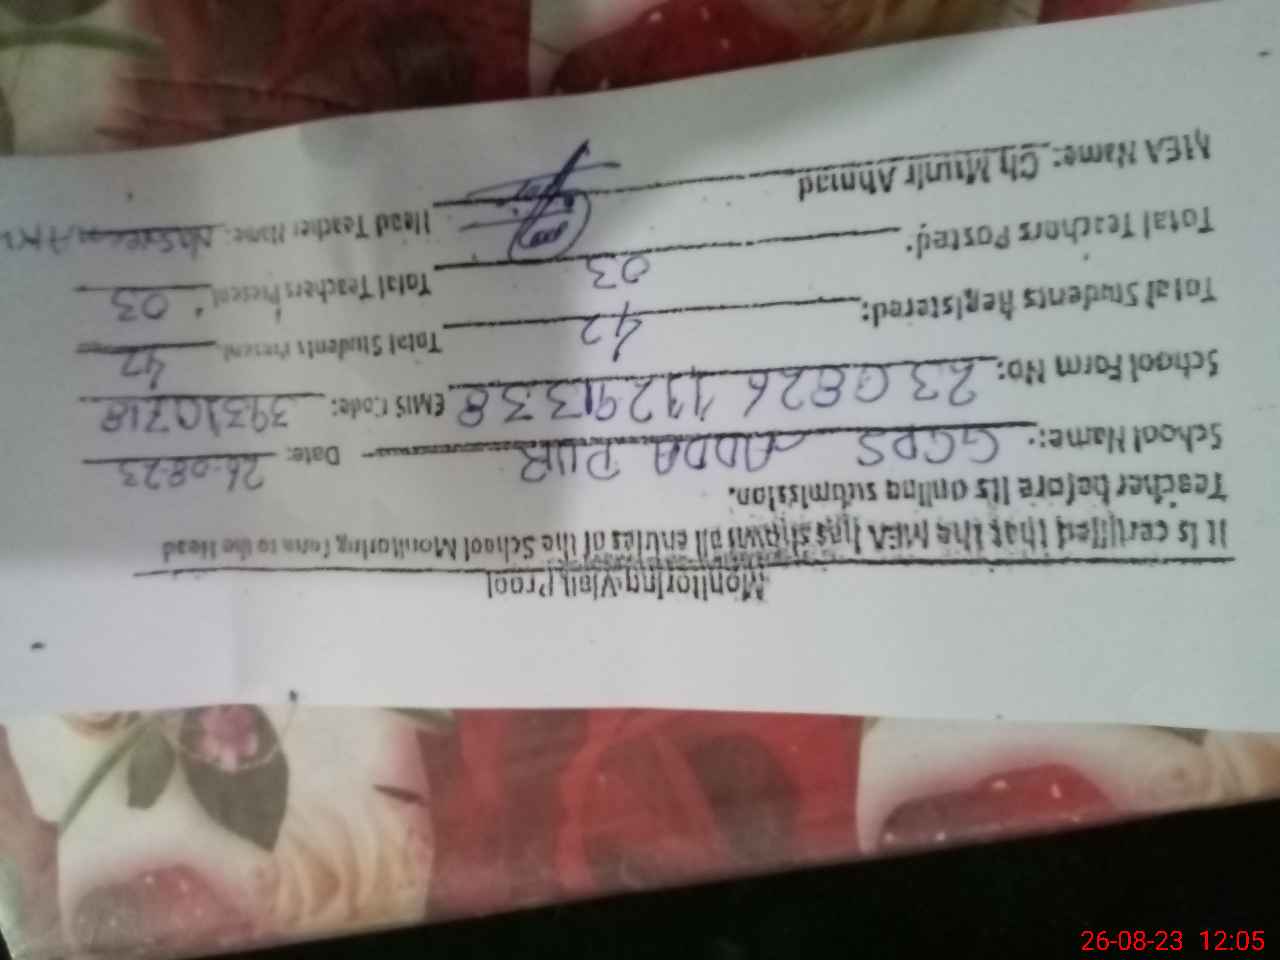 Monitoring Visit Proof
It is certified that the MEA has shown all entries of the School Monitoring form to the Head
Teacher before its online submission.
School Name: GGPS ADDA PUR Date: 26-08-23
School Form No: 230826 11291338 EMIS Code: 39310718
Total Students Registered: 42 Total Students Present 42
Total Teachers Posted: 03 Total Teachers Present 03
MEA Name: Ch Munir Ahmad Head Teacher Name:
26-08-23 12:05